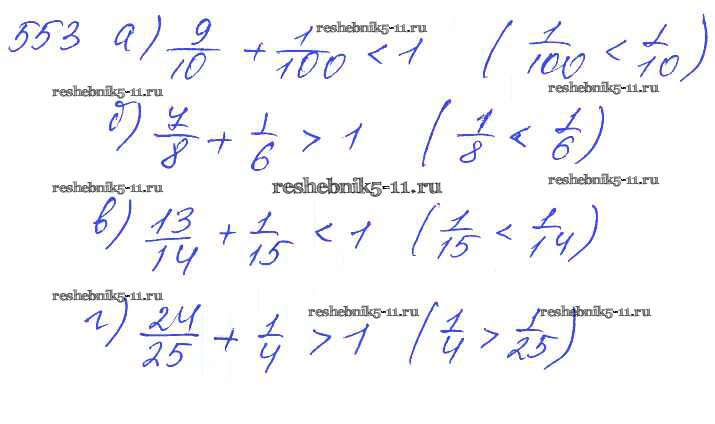 553 а) 9/10 + 1/100 < 1 (1/100 < 1/10)
reshebnik5-11.ru
reshebnik5-11.ru reshebnik5-11.ru
б) 7/8 + 1/6 > 1 (1/8 < 1/6)
reshebnik5-11.ru reshebnik5-11.ru reshebnik5-11.ru
в) 13/14 + 1/15 < 1 (1/15 < 1/14)
reshebnik5-11.ru reshebnik5-11.ru reshebnik5-11.ru
г) 24/25 + 1/4 > 1 (1/4 > 1/25)